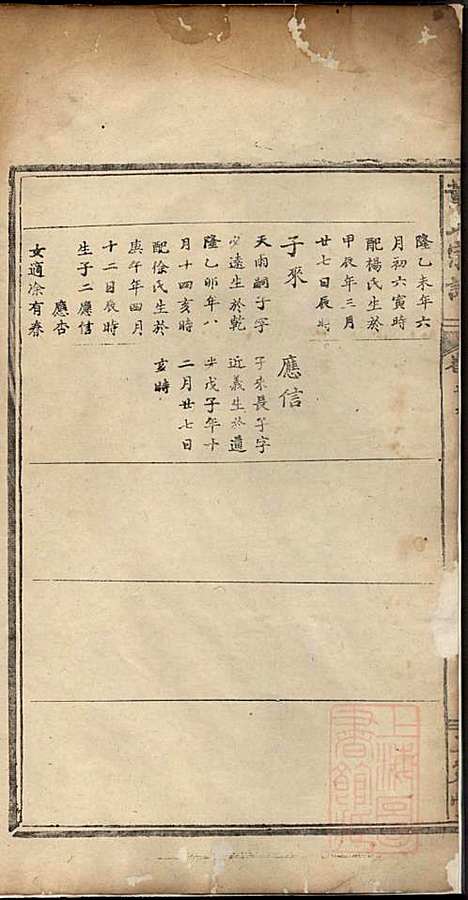 隆乙未年六
月初六寅時
配楊氏生於
甲辰年三月
廿七日辰時
子來
天雨嗣子字
必遠生於乾
隆乙卯年八
月十四亥時
配徐氏生於
庚午年四月
十二日辰時
生子二應信
應杏
女適涂有春
應信
子來長子字
近義生於道
光戊子年十
二月廿七日
亥時